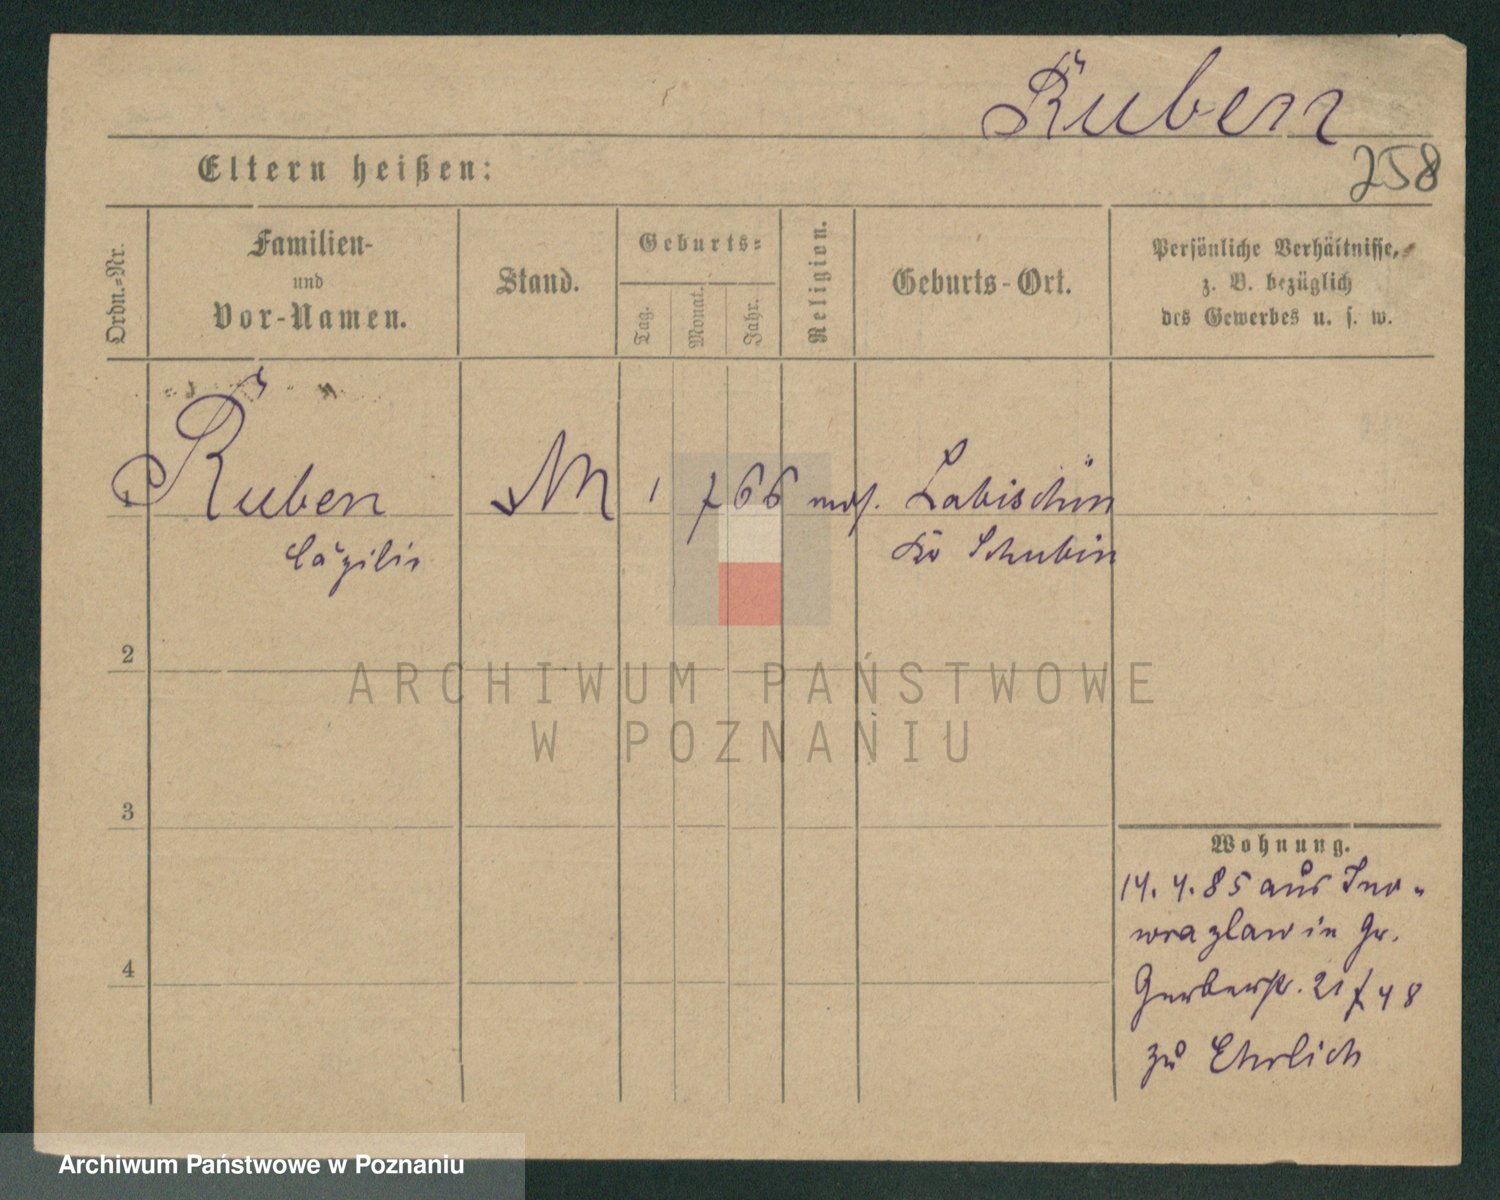 Ruben
258
Eltern heißen:
Ordn.-Nr.
Familien-
und
Vor-Namen.
Stand.
Geburts-
Tag.
Monat.
Jahr.
Religion.
Geburts-Ort.
Persönliche Verhältnisse,
z. B. bezüglich
des Gewerbes u. s. w.
Ruben
Cäzilie
1 7 66
mos.
Labischin
Kr Schubin
2
3
4
Wohnung.
14. 4. 85 aus Ino-
wrazlaw in Gr.
Gerberstr. 21
zu Ehrlich
ARCHIWUM PAŃSTWOWE
W POZNANIU
Archiwum Państwowe w Poznaniu